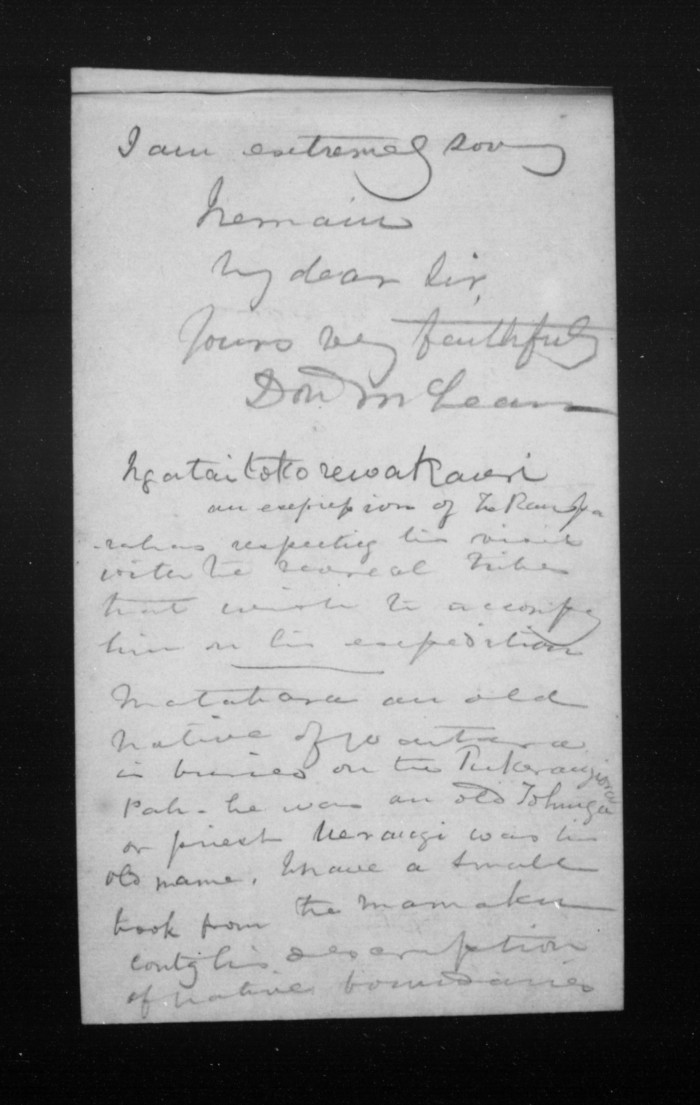 I am extremely sorry
I remain
My dear Sir,
Yours very faithfully
Don McLean
Ngataitokorewakauri
an expression of Te Raupa
rahas respecting his visit
with the several Tribes
that wish to accompy
him on his expedition
Matahara an old
native of Waitara
is buried on the Pukerangiora
Pah - he was an old Tohunga
or priest Uerangi was his
old name. I have a small
book from the Mamaku
contg his description
of native boundaries